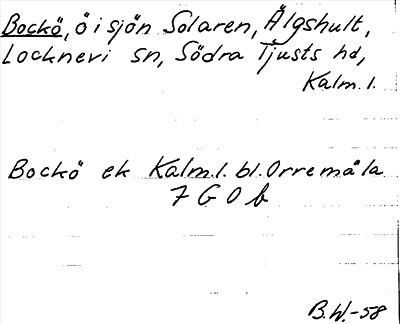 Bockö, ö i sjön Solaren, Älgshult,
Locknevi sn, Södra Tjusts hd,
Kalm. l.
Bockö ek Kalm. l. bl. Orremåla
7 G 0 b
B.W.-58